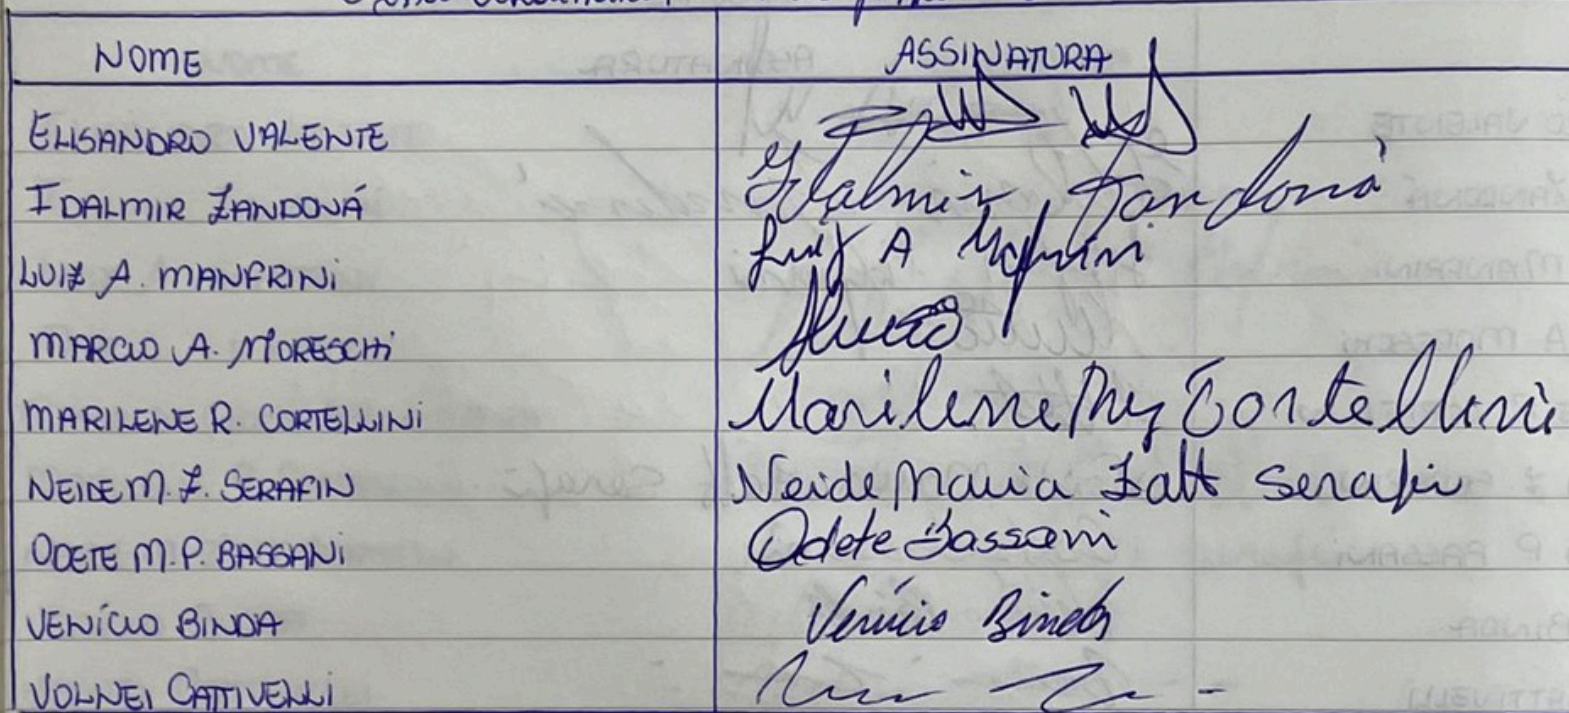 NOME ASSINATURA
ELISANDRO VALENTE
IDALMIR ZANDONÁ Idalmir Zandoná
LUIZ A. MANFRINI Luiz A Manfrini
MARCIO A. MORESCHI
MARILENE R. CORTELLINI Marilene Cortellini
NEIDE M. Z. SERAFIN Neide Maria Zatt Serafin
ODETE M. P. BASSANI Odete Bassani
VENÍCIO BINDA Venício Binda
VOLNEI CATTIVELLI